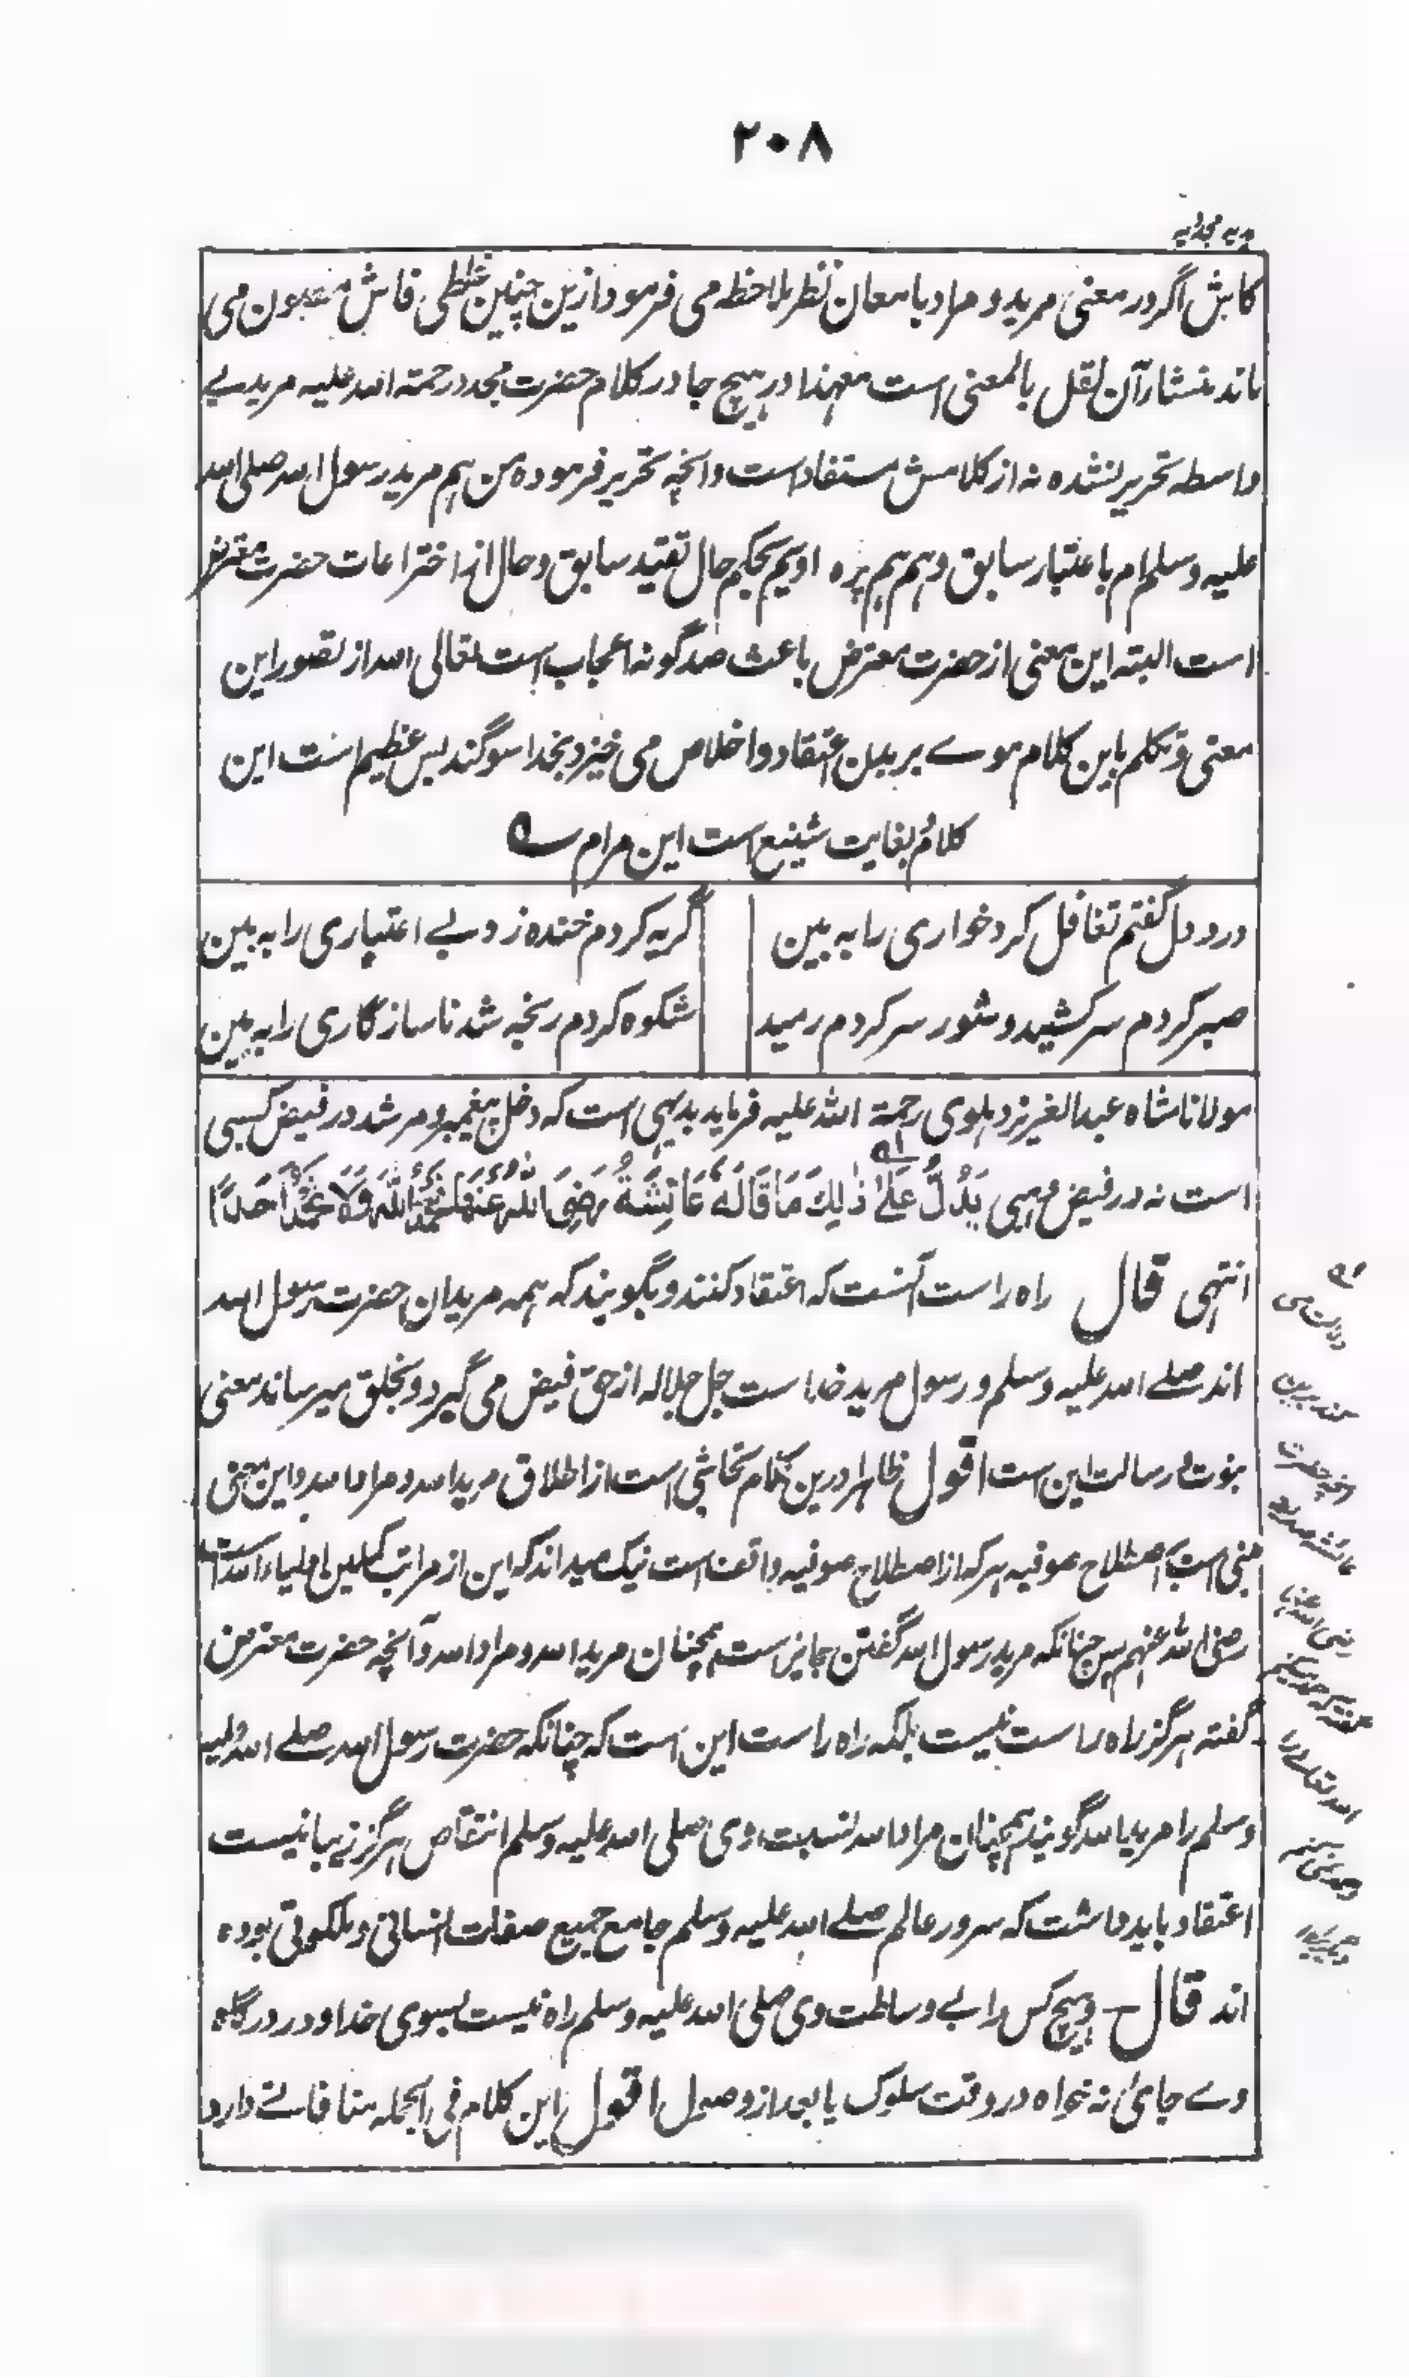 ۲۰۸
هدیه مجددیه
کاش اگر در معنی مرید و مراد بامعان نظر ملاحظه می فرمود ازین چنین غلطی فاش مصون می
ماند منشار آن نقل بالمعنی است معهذا در هیچ جا در کلام حضرت مجدد رحمته الله علیه مرید بے
واسطه تحریر نشده نه از کلامش مستفاد است و انچه تحریر فرموده من هم مرید رسول الله صلی الله
علیه وسلم ام باعتبار سابق و هم هم پره اویم بحکم حال تقیید سابق و حال از اختراعات حضرت معترض
است البته این معنی از حضرت معترض باعث صدگونه اعجاب است تعالی الله از تصور این
معنی و تکلم باین کلام موے بر بدن اعتقاد و اخلاص می خیزد بخدا سوگند بس عظیم است این
کلام بغایت شنیع است این مرام ؎
درد دل گفتم تغافل کرد خواری را به بین گریه کردم خنده زد بے اعتباری را به بین
صبر کردم سر کشید و شور سر کردم رمید شکوه کردم رنجه شد ناسازگاری را به بین
مولانا شاه عبدالعزیز دهلوی رحمة الله علیه فرماید بدیهی است که دخل پیغمبر و مرشد در فیض کسبی
است نه در فیض وهبی یَدُلُّ عَلٰی ذٰلِكَ مَا قَالَهُ عَائِشَةُ رَضِیَ اللهُ عَنْهَا نَحْمَدُ اللهَ وَلَا نَحْمَدُ اَحَدًا
انتهی قال راه راست آنست که اعتقاد کنند و بگویند که همه مریدان حضرت رسول الله
اند صلے الله علیه وسلم و رسول مرید خداست جل جلاله از حق فیض می گیرد و بخلق میرساند معنی
نبوت و رسالت این است اقول ظاهرا درین کلام تحاشی است از اطلاق مرید الله و مراد الله و این معنی
مبنی است بر اصطلاح صوفیه هر که از اصطلاح صوفیه واقف است نیک میداند که این از مراتب کملین اولیاء الله است
رضی الله عنهم پس چنانکه مرید رسول الله گفتن جایز است همچنان مرید الله و مراد الله و آنچه حضرت معترض
گفته هرگز راه راست نیست بلکه راه راست این است که چنانکه حضرت رسول الله صلے الله علیه
وسلم را مرید الله گویند همچنان مراد الله نسبت وی صلی الله علیه وسلم انتقاص هرگز زیبا نیست
اعتقاد باید داشت که سرور عالم صلے الله علیه وسلم جامع جمیع صفات انسانی و ملکوتی بوده
اند قال وهیچ کس را بے وساطت وی صلی الله علیه وسلم راه نیست بسوی خدا و در درگاه
وے جائ نه خواه در وقت سلوک یا بعد از وصول اقول این کلام فی الجمله منافاتے دارد
دلالت می
کند برین
انچه حضرت
عائشه صدیقه
رضی الله عنها
گفته که حمد میکنم
الله تعالے را و
حمد نمی کنم
دیگرے را